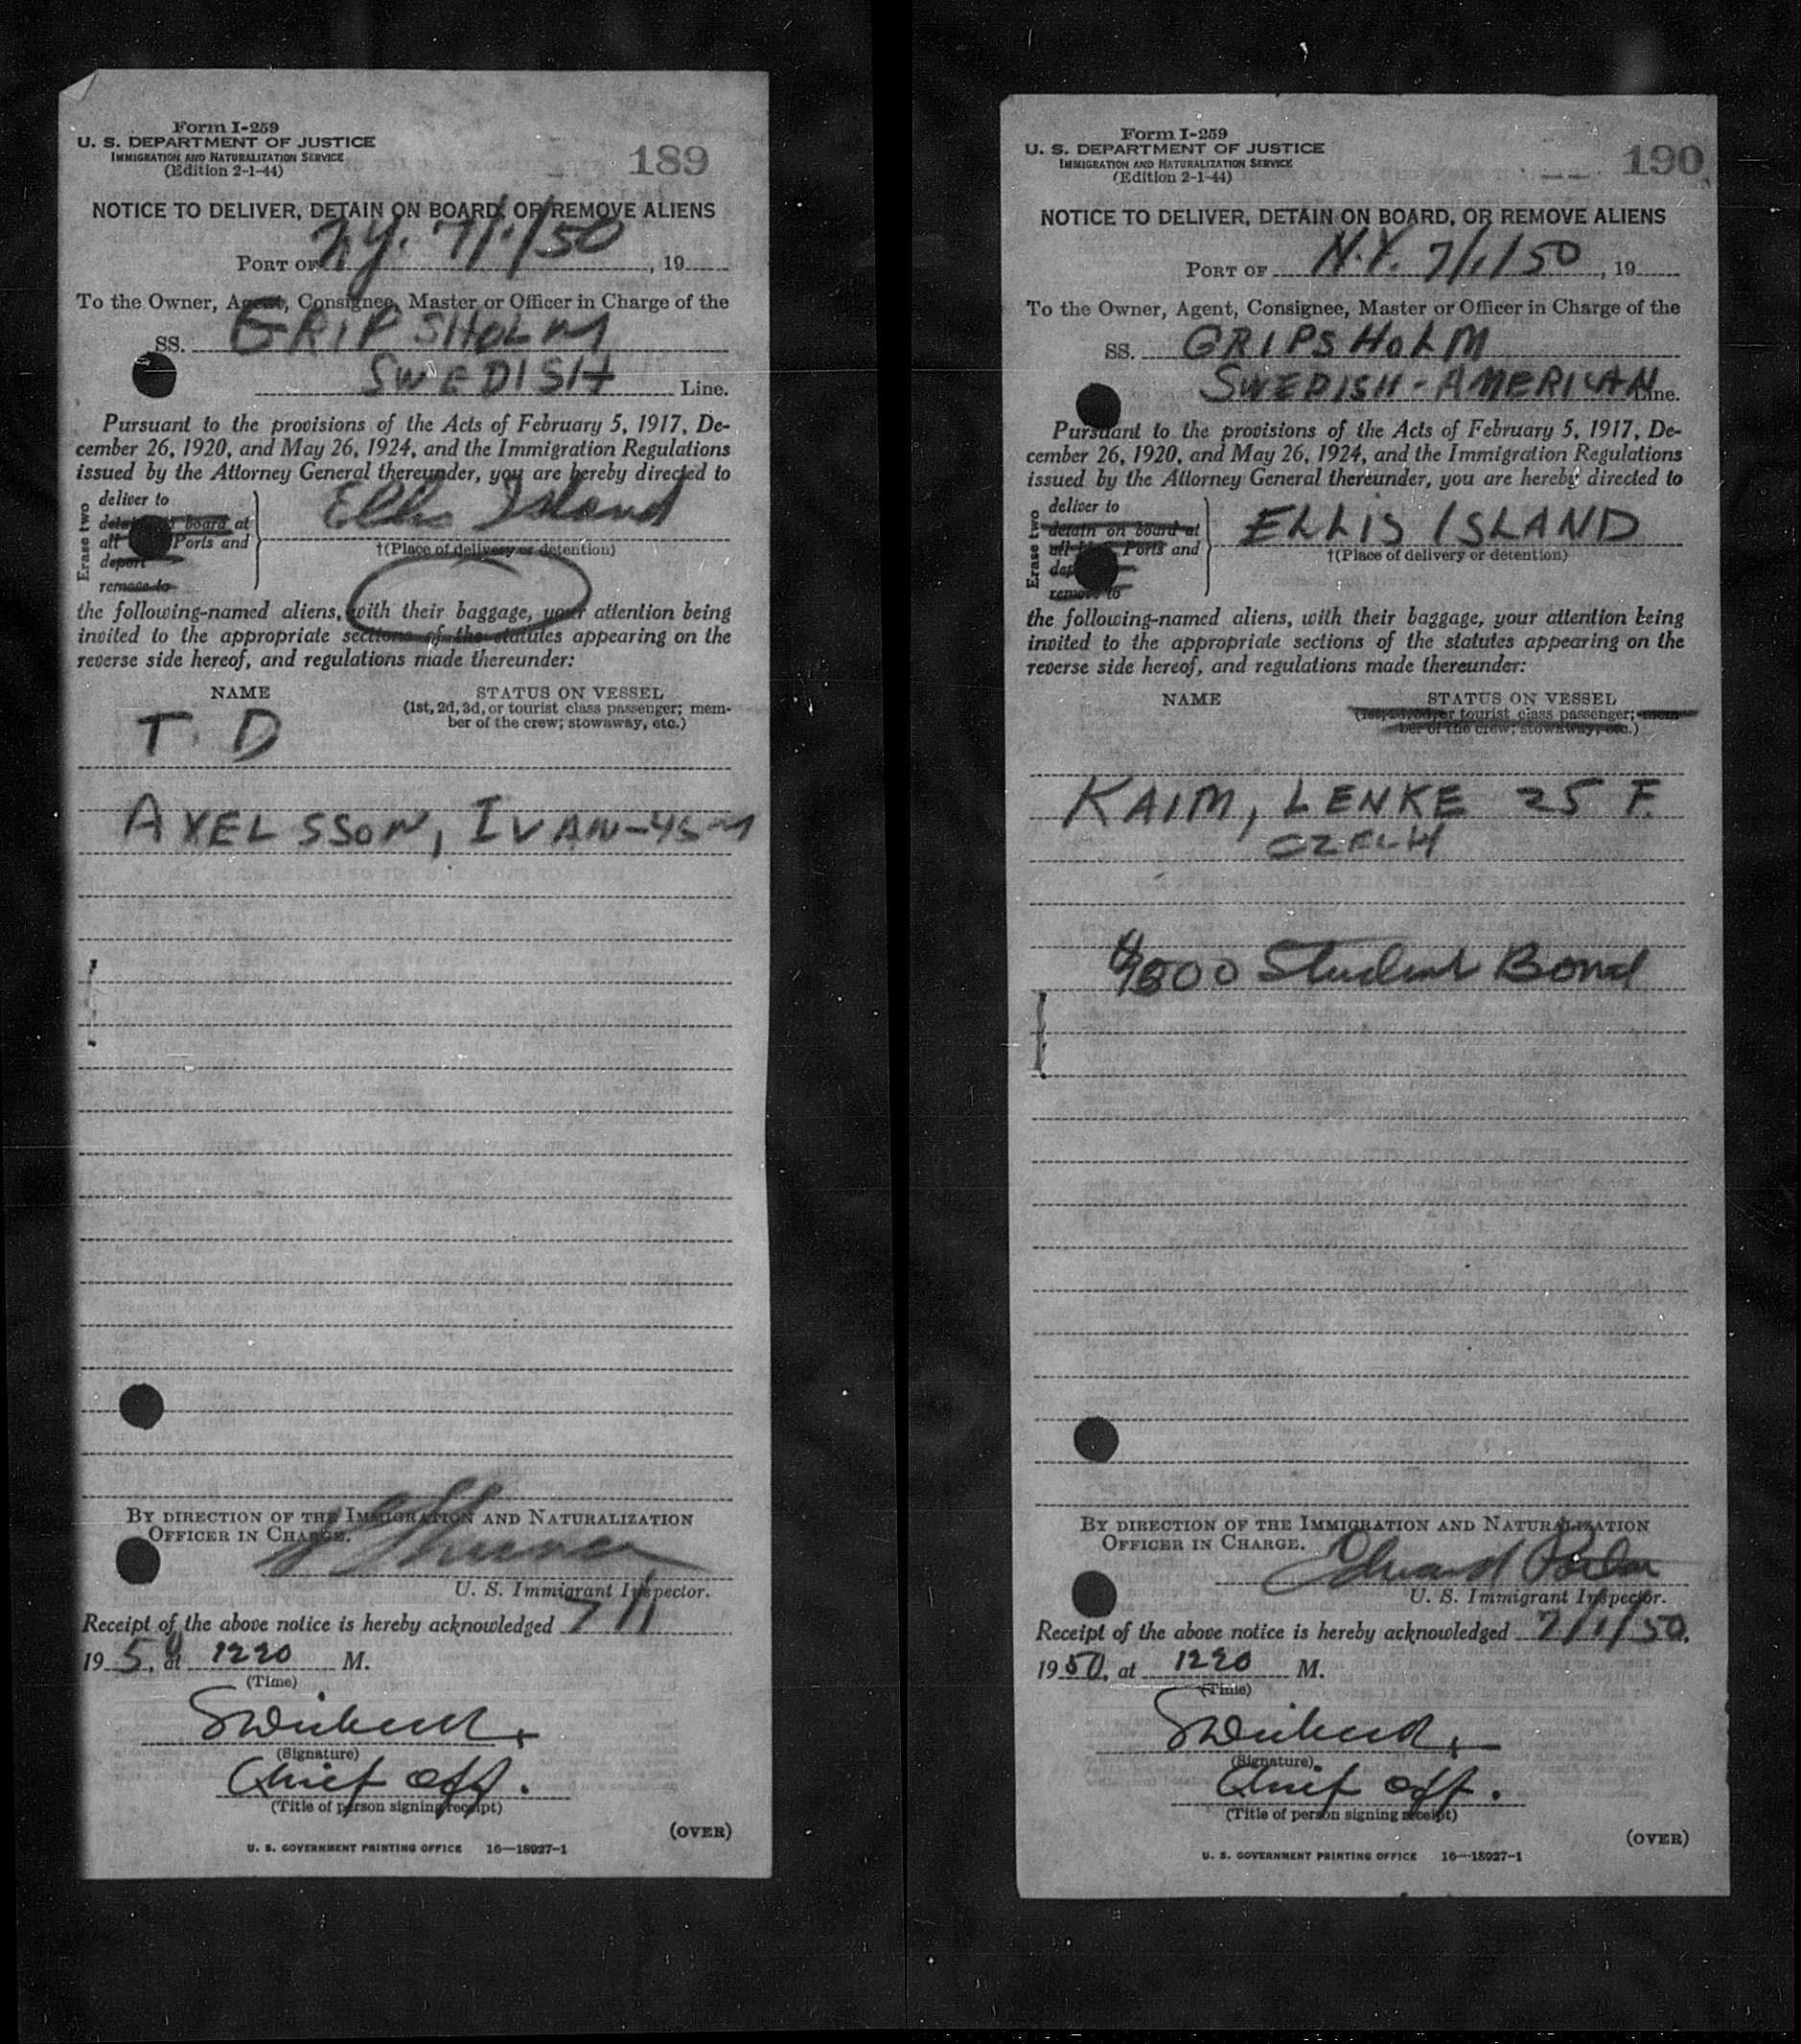 Form I-259
U. S. DEPARTMENT OF JUSTICE
IMMIGRATION AND NATURALIZATION SERVICE
(Edition 2-1-44)
189
NOTICE TO DELIVER, DETAIN ON BOARD, OR REMOVE ALIENS
PORT OF N.Y. 7/1/50, 19
To the Owner, Agent, Consignee, Master or Officer in Charge of the
SS. GRIPSHOLM
SWEDISH Line.
Pursuant to the provisions of the Acts of February 5, 1917, De-
cember 26, 1920, and May 26, 1924, and the Immigration Regulations
issued by the Attorney General thereunder, you are hereby directed to
Erase two
deliver to
detain on board at
all Ports and
deport
remove to
Ellis Island
†(Place of delivery or detention)
the following-named aliens, with their baggage, your attention being
invited to the appropriate sections of the statutes appearing on the
reverse side hereof, and regulations made thereunder:
NAME
STATUS ON VESSEL
(1st, 2d, 3d, or tourist class passenger; mem-
ber of the crew; stowaway, etc.)
T. D
AXELSSON, IVAN-45 M
BY DIRECTION OF THE IMMIGRATION AND NATURALIZATION
OFFICER IN CHARGE.
U. S. Immigrant Inspector.
Receipt of the above notice is hereby acknowledged 7/1
1950, at 1220 M.
(Time)
(Signature)
Chief off.
(Title of person signing receipt)
(OVER)
U. S. GOVERNMENT PRINTING OFFICE 16—18927-1
Form I-259
U. S. DEPARTMENT OF JUSTICE
IMMIGRATION AND NATURALIZATION SERVICE
(Edition 2-1-44)
190
NOTICE TO DELIVER, DETAIN ON BOARD, OR REMOVE ALIENS
PORT OF N.Y. 7/1/50, 19
To the Owner, Agent, Consignee, Master or Officer in Charge of the
SS. GRIPSHOLM
SWEDISH-AMERICAN Line.
Pursuant to the provisions of the Acts of February 5, 1917, De-
cember 26, 1920, and May 26, 1924, and the Immigration Regulations
issued by the Attorney General thereunder, you are hereby directed to
Erase two
deliver to
detain on board at
all Ports and
remove to
ELLIS ISLAND
†(Place of delivery or detention)
the following-named aliens, with their baggage, your attention being
invited to the appropriate sections of the statutes appearing on the
reverse side hereof, and regulations made thereunder:
NAME
STATUS ON VESSEL
(1st, 2d, 3d, or tourist class passenger; mem-
ber of the crew; stowaway, etc.)
KAIM, LENKE 25 F.
CZECH
$500 Student Bond
BY DIRECTION OF THE IMMIGRATION AND NATURALIZATION
OFFICER IN CHARGE.
Edward
U. S. Immigrant Inspector.
Receipt of the above notice is hereby acknowledged 7/1/50,
1950, at 1220 M.
(Time)
(Signature)
Chief off.
(Title of person signing receipt)
(OVER)
U. S. GOVERNMENT PRINTING OFFICE 16—18927-1